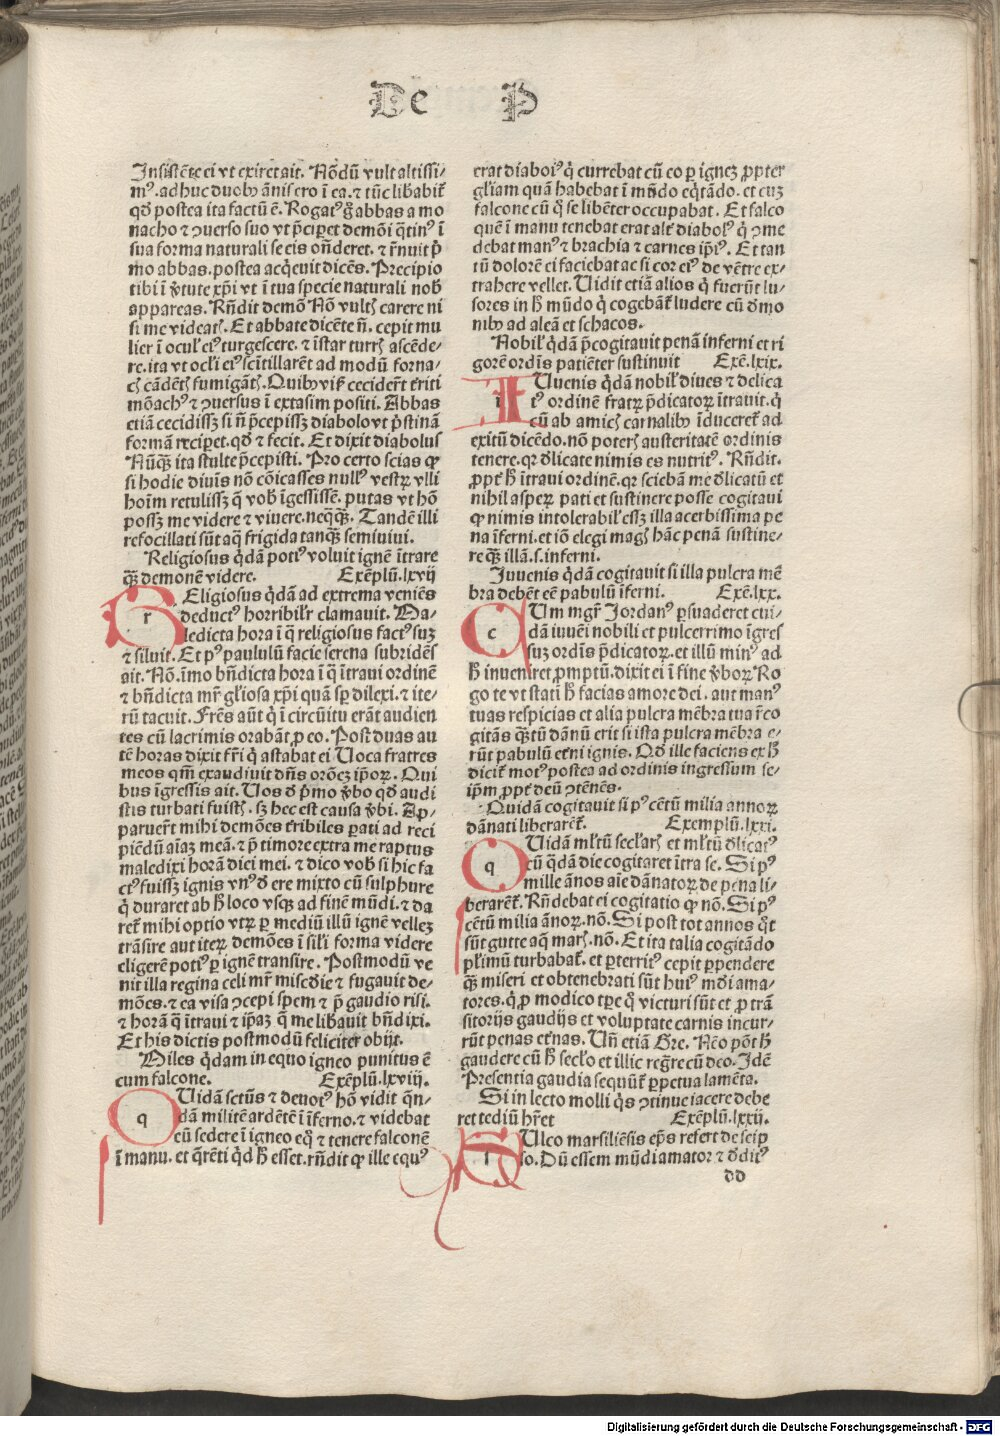 De P
Insistēte ei vt exiret ait. Nōdū vult altissi/
mꝰ. ad huc duobꝫ ānis ero ī ea. ⁊ tūc libabit᷑
qđ postea ita factū ē. Rogatꝰ g̃ abbas a mo
nacho ⁊ ꝯuerso suo vt p̄ciꝑet demōi q̄tinꝰ ī
sua forma naturali se eis oñderet. ⁊ r̄nuit p̄
mo abbas. postea acq̄euit dicēs. Precipio
tibi ī v̄tute xp̄i vt ī tua specie naturali nob̄
appareas. Rñdit demō Nō vultꝭ carere ni
si me videatꝭ. Et abbate dicēte ñ. cepit mu
lier ī oculꝭ eiꝰ turgescere. ⁊ īstar turrꝭ ascēde/
re. ita vt ocl̄i eiꝰ scītillarēt ad modū forna/
cꝭ cādētꝭ fumigātꝭ. Quibꝫ visꝭ ceciderūt ēriti
mōachꝰ ⁊ ꝯuersus ī extasim positi. Abbas
etiā cecidissꝫ si ñ p̄cepissꝫ diabolo vt p̄stinā
formā reciꝑet. qđ ⁊ fecit. Et dixit diabolus
Nūqꝫ̄ ita stulte p̄cepisti. Pro certo scias ꝙ
si hodie diuīs nō cōicasses nullꝰ vestꝝ vlli
hoīm retulissꝫ q̄ vob̄ īgessissē. putas vt hō
possꝫ me videre ⁊ viuere. neqꝫ̄qꝫ̄. Tandē illi
refocillati sūt aq̄ frigida tanqꝫ̄ semiuiui.
Religiosus q̇dā potiꝰ voluit ignē ītrare
qꝫ̄ demonē videre. Exēplū. lxvij
r Eligiosus q̇dā ad extrema veniēs
deductꝰ horribilr̄ clamauit. Ma/
ledicta hora ī q̄ religiosus factꝰ suꝫ
⁊ siluit. Et pꝰ paululū facie serena subridēs
ait. Nō. īmo bñdicta hora ī q̄ ītraui ordinē
⁊ bñdicta mr̄ gl̄iosa xp̄i quā sꝑ dilexi. ⁊ ite/
rū tacuit. Frēs aūt q̇ ī circūitu erāt audien
tes cū lacrimis orabāt ꝓ eo. Post duas au
tē horas dixit fr̄i q̇ astabat ei Uoca fratres
meos qm̄ exaudiuit dñs orōeꝫ ip̄oꝝ. Qui
bus īgressis ait. Uos đ p̄mo v̄bo qđ audi
stis turbati fuistꝭ. sꝫ hec est causa v̄bi. Ap/
paruert̄ mihi demōes t̄ribiles ꝑati ad reci
piēdū aīaꝫ meā. ⁊ p̄ timore extra me raptus
maledixi horā diei mei. ⁊ dico vob̄ si hic fa
ctꝰ fuissꝫ ignis vnꝰ đ ere mixto cū sulphure
q̇ duraret ab h̄ loco vsqꝫ ad finē mūdi. ⁊ da
ret᷑ mihi optio vtꝝ ꝑ mediū illū ignē velleꝫ
trāsire aut iteꝝ demōes ī sil̄i forma videre
eligerē potiꝰ ꝑ ignē transire. Postmodū ve
nit illa regina celi mr̄ miscđie ⁊ fugauit de/
mōes. ⁊ ea visa ꝯcepi spem ⁊ p̄ gaudio risi.
⁊ horā q̄ ītraui ⁊ ip̄aꝫ q̄ me libauit bñdixi.
Et his dictis postmodū feliciter obijt.
Miles q̇dam in equo igneo punitus ē
cum falcone. Exēplū. lxviij.
q Uidā sctūs ⁊ deuotꝰ hō vidit q̄n/
dā militē ardētē ī īferno. ⁊ videbat
eū sedere ī igneo eq̄ ⁊ tenere falconē
ī manu. et q̄rēti q̇d h̄ esset. rñdit ꝙ ille equꝰ
erat diabolꝰ q̇ currebat cū eo ꝑ igneꝫ ꝓpter
gl̄iam quā habebat ī mūdo eq̇tādo. et cuꝫ
falcone cū q̇ se libēter occupabat. Et falco
quē ī manu tenebat erat alt̄ diabolꝰ q̇ ꝯme
debat manꝰ ⁊ brachia ⁊ carnes ip̄iꝰ. Et tan
tū dolorē ei faciebat ac si cor eiꝰ de vētre ex/
trahere vellet. Uidit etiā alios q̇ fuerūt lu/
sores in h̄ mūdo q̇ cogebāt᷑ ludere cū đmo
nibꝫ ad aleā et schacos.
Nobilꝭ q̇dā p̄cogitauit penā inferni et ri
gorē ordīs patiēter sustinuit Exē. lxix.
i Uuenis q̇dā nobilꝭ diues ⁊ delica
tꝰ ordinē fratꝝ p̄dicatoꝝ ītrauit. q̇
cū ab amicꝭ carnalibꝫ īduceret᷑ ad
exitū dicēdo. nō poterꝭ austeritatē ordinis
tenere. qꝛ đlicate nimis es nutritꝰ. Rñdit.
ꝓpt̄ h̄ ītraui ordinē. qꝛ sciebā me đlicatū et
nihil asperꝝ pati et sustinere posse cogitaui
ꝙ nimis intolerabilꝭ essꝫ illa acerbissima pe
na īferni. et iō elegi magꝭ hāc penā sustine/
re qꝫ̄ illā. s. inferni.
Iuuenis q̇dā cogitauit si illa pulcra mē
bra debēt eē pabulū īferni. Exē. lxx.
c Um mgr̄ Jordanꝰ ꝑsuaderet cui/
dā iuuēi nobili et pulcerrimo īgres
suꝫ ordīs p̄dicatoꝝ. et illū minꝰ ad
h̄ inueniret ꝓmptū. dixit ei ī fine v̄boꝝ Ro
go te vt stati h̄ facias amore dei. aut manꝰ
tuas respicias et alia pulcra mēbra tua r̄co
gitās qꝫ̄tū dānū erit si ista pulcra mēbra e/
rūt pabulū et̄ni ignis. Qđ ille faciens ex h̄
dicit᷑ motꝰ postea ad ordinis ingressum se/
ip̄m ꝓpt̄ deū ꝯtēnēs.
Quidā cogitauit si pꝰ cētū milia annoꝝ
dānati liberarēt᷑. Exemplū. lxxi.
q Uidā ml̄tū secl̄arꝭ et ml̄tū đlicatꝰ
cū q̇dā die cogitaret ītra se. Si pꝰ
mille ānos aīe dānatoꝝ de pena li/
berarēt᷑. Rñdebat ei cogitatio ꝙ nō. Si pꝰ
cētū milia ānoꝝ. nō. Si post tot annos q̇t
sūt gutte aq̄ marꝭ. nō. Et ita talia cogitādo
pl̄imū turbabat᷑. et ꝑterritꝰ cepit ꝑpendere
qꝫ̄ miseri et obtenebrati sūt huiꝰ mūdi ama/
tores. q̇ ꝓ modico tꝑe q̇ victuri sūt et ꝓ trā
sitorijs gaudijs et voluptate carnis incur/
rūt penas et̄nas. Uñ etiā Gre. Nēo pōt h̄
gaudere cū h̄ secl̄o et illic regr̄e cū deo. Idē
Presentia gaudia sequūt᷑ ꝑpetua lamēta.
Si in lecto molli q̇s ꝯtinue iacere debe
ret tediū hr̄et Exēplū. lxxij.
f Ulco marsiliēsis ep̄s refert de seip̄
so. Dū essem mūdi amator ⁊ đditꝰ
dd
Digitalisierung gefördert durch die Deutsche Forschungsgemeinschaft - DFG